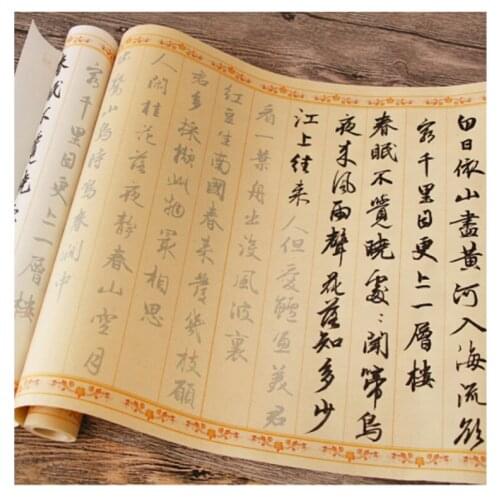 白日依山盡黄河入海流欲
窮千里目更上一層樓
春眠不覺曉處〻聞啼鳥
夜来風雨聲花落知多少
江上往来人但愛鱸魚美君
看一葉舟出没風波裏
紅豆生南國春来發幾枝願
君多採擷此物最相思
人閒桂花落夜静春山空月
出驚山鳥時鳴春澗中
窮千里目更上一層樓
春眠不覺曉